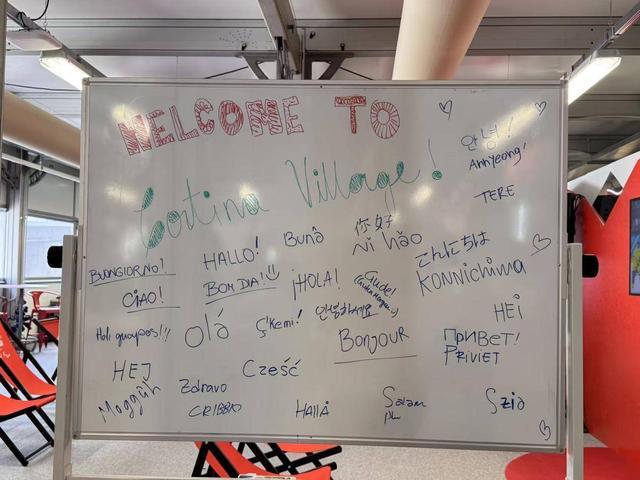 WELCOME TO
Cortina Village!
안녕!
Annyeong!
TERE
BUONGIORNO!
CIAO!
HALLO!
BOM DIA!
Bună
¡HOLA!
你好
Nǐ hǎo
こんにちは
KONNICHIWA
Gude!
Holi guapos!!!
Olá
Ç'kemi!
안녕하세요
BONJOUR
HEi
ПРИВЕТ!
PRIVIET
HEJ
Zdravo
Cześć
CRIBBIO
HALLÅ
Salam
Szia